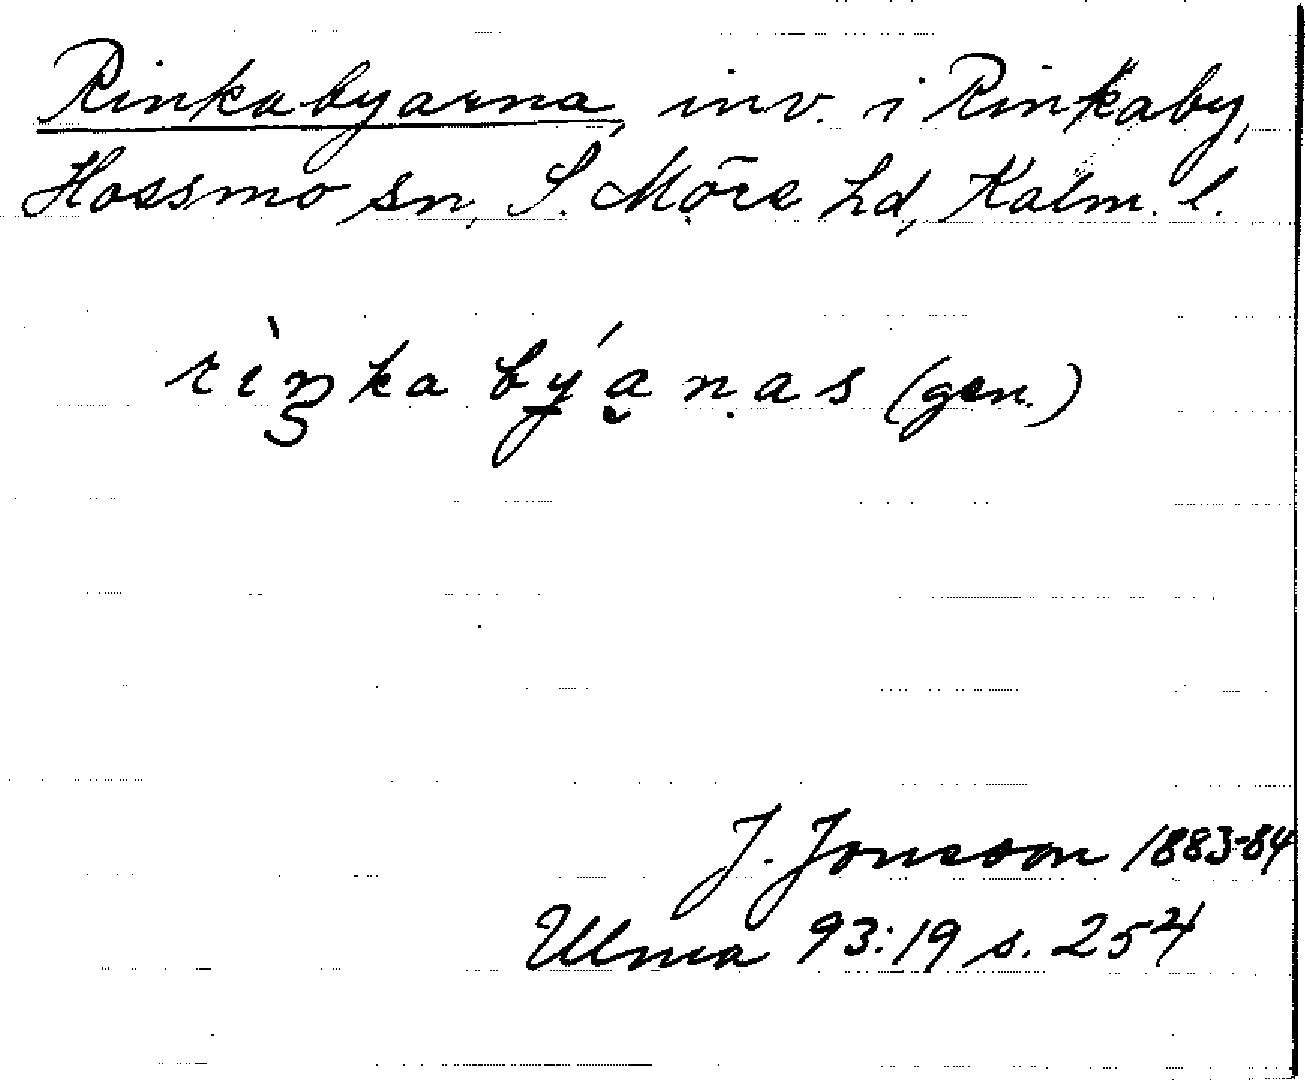 Rinkabyarna, inv. i Rinkaby,
Hossmo sn, S. Möre hd, Kalm. l.
rìŋka býanas (gen.)
J. Jonsson 1883-84
Ulma 93:19 s. 254